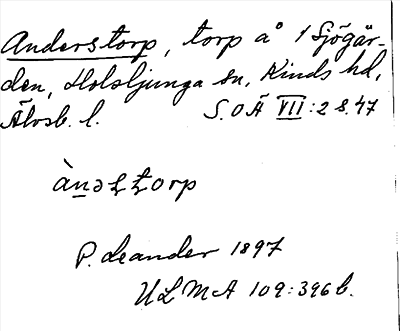 Anderstorp, torp å 1 Sjögär-
den, Holsljunga sn, Kinds hd,
Älvsb. l. S.O Ä VII: 2 s. 47
P. Leander 1897
ULMA 109:396 b.